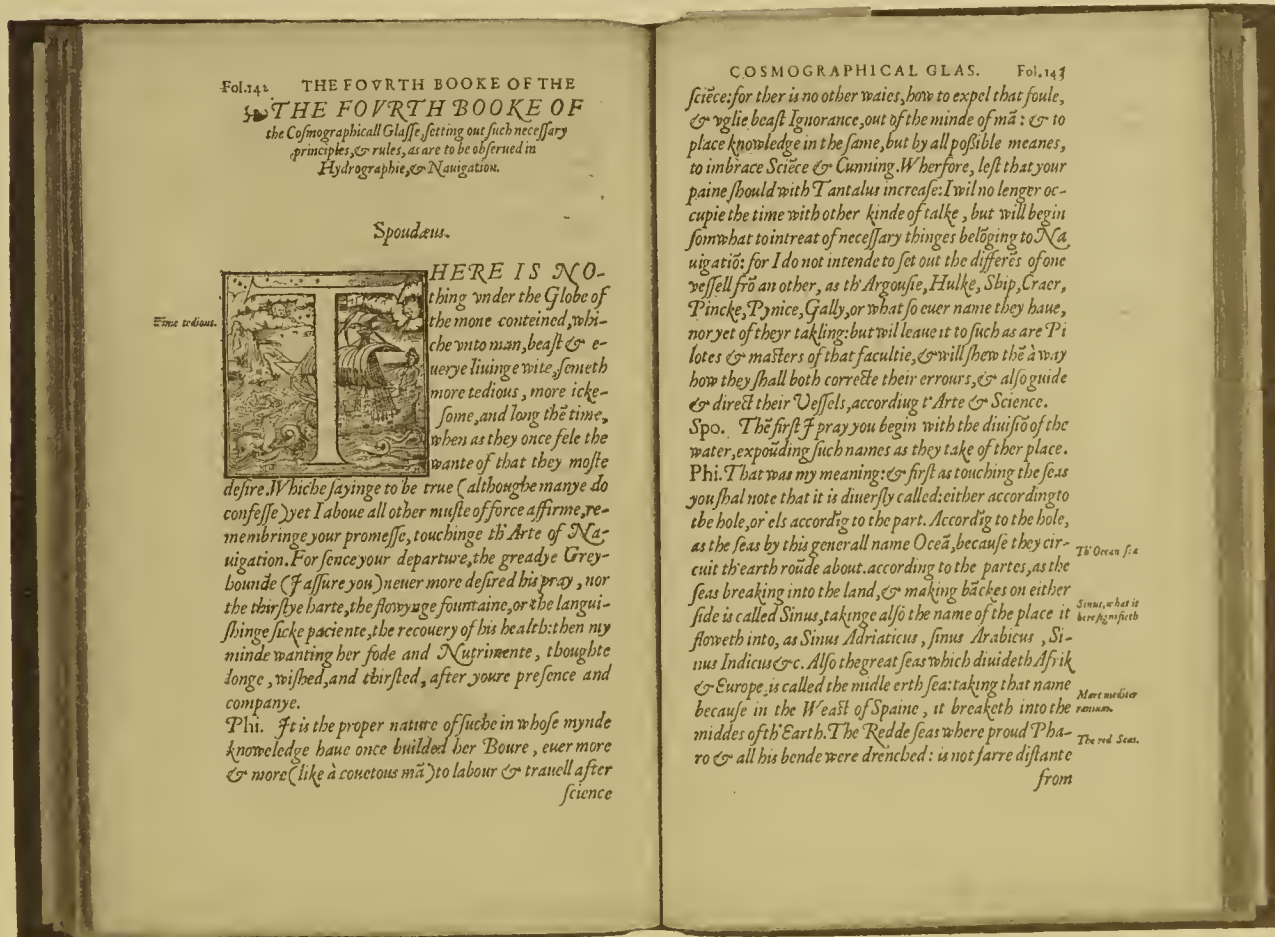 Fol.142 THE FOVRTH BOOKE OF THE
THE FOVRTH BOOKE OF
the Coſmographicall Glaſſe, ſetting out ſuch neceſſary
principles, & rules, as are to be obſerued in
Hydrographie, & Nauigation.
Spoudæus.
Time tedious.
THERE IS NO-
thing vnder the Globe of
the mone conteined, whi-
che vnto man, beaſt & e-
uerye liuinge wite, ſemeth
more tedious, more icke-
ſome, and long thē time,
when as they once fele the
wante of that they moſte
deſire. Whiche ſayinge to be true (althoughe manye do
confeſſe) yet I aboue all other muſte of force affirme, re-
membringe your promeſſe, touchinge th'Arte of Na-
uigation. For ſence your departure, the greadye Grey-
hounde (I aſſure you) neuer more deſired his pray, nor
the thirſtye harte, the flowynge fountaine, or the langui-
ſhinge ſicke paciente, the recouery of his health: then my
minde wanting her fode and Nutrimente, thoughte
longe, wiſhed, and thirſted, after youre preſence and
companye.
Phi. It is the proper nature of ſuche in whoſe mynde
knoweledge haue once builded her Boure, euer more
& more (like à couetous mā) to labour & trauell after
ſcience
COSMOGRAPHICAL GLAS. Fol.143
ſciēce: for ther is no other waies, how to expel that foule,
& vglie beaſt Ignorance, out of the minde of mā: & to
place knowledge in the ſame, but by all poſsible meanes,
to imbrace Sciēce & Cunning. Wherfore, leſt that your
paine ſhould with Tantalus increaſe: I wil no lenger oc-
cupie the time with other kinde of talke, but will begin
ſomwhat to intreat of neceſſary thinges belōging to Na
uigatiō: for I do not intende to ſet out the differēs of one
veſſell frō an other, as th'Argouſie, Hulke, Ship, Craer,
Pincke, Pynice, Gally, or what ſo euer name they haue,
nor yet of theyr takling: but wil leaue it to ſuch as are Pi
lotes & maſters of that facultie, & will ſhew thē à way
how they ſhall both correcte their errours, & alſo guide
& direct their Veſſels, accordiug t'Arte & Science.
Spo. Thē firſt I pray you begin with the diuiſiō of the
water, expoūding ſuch names as they take of ther place.
Phi. That was my meaning: & firſt as touching the ſeas
you ſhal note that it is diuerſly called: either according to
the hole, or els accordīg to the part. Accordīg to the hole,
as the ſeas by this generall name Oceā, becauſe they cir-
Th'Ocean ſea
cuit th'earth roūde about. according to the partes, as the
ſeas breaking into the land, & making bāckes on either
ſide is called Sinus, takinge alſo the name of the place it
Sinus, what it
here ſignifieth
floweth into, as Sinus Adriaticus, ſinus Arabicus, Si-
nus Indicus &c. Alſo the great ſeas which diuideth Afrik
& Europe, is called the midle erth ſea: taking that name
becauſe in the Weaſt of Spaine, it breaketh into the
Mare mediter
raneum.
middes of th'Earth. The Redde ſeas where proud Pha-
The red Seas.
ro & all his bende were drēnched: is not farre diſtante
from